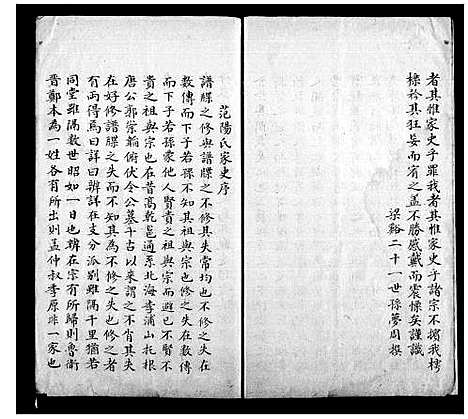 者其惟家史乎罪我者其惟家史乎諸宗不擯我樗
櫟矜其狂妄而宥之蓋不勝感戴而震慄矣謹識
梁谿二十一世孫夢周撰
范陽氏家史序
譜牒之修與譜牒之不修其失常均也不修之失在
數傳而下子若孫不知其祖與宗也修之失在數傳
而下子若孫蒙他人賢貴之祖與宗而避已不賢不
貴之祖與宗也在昔高乾邕通系北海李浦山托根
唐公郭崇韜俯伏令公墓千古以來謂之不肖其失
在好修譜牒之失而不知其為不修之失也修之者
有兩得焉曰詳曰辨詳在支分派別雖隔千里猶若
同堂雖隔數世昭如一日也辨在宗有所歸則魯衛
晉鄭本為一姓各有所出則孟仲叔季原非一家也